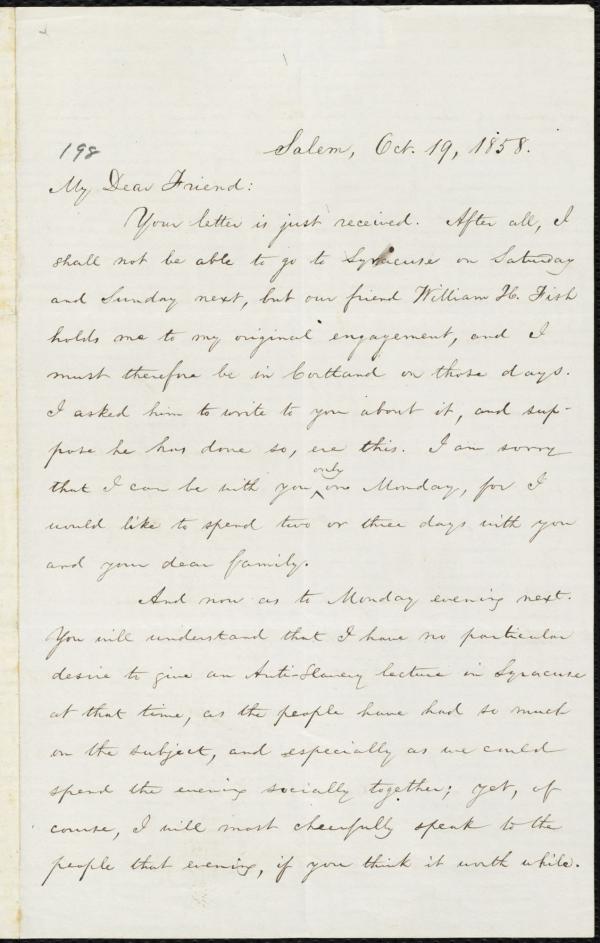 198
Salem, Oct. 19, 1858.
My Dear Friend:
Your letter is just received. After all, I
shall not be able to go to Syracuse on Saturday
and Sunday next, but our friend William H. Fish
holds me to my original engagement, and I
must therefore be in Cortland on those days.
I asked him to write to you about it, and sup-
pose he has done so, ere this. I am sorry
that I can be with you only one Monday, for I
would like to spend two or three days with you
and your dear family.
And now as to Monday evening next.
You will understand that I have no particular
desire to give an Anti-Slavery lecture in Syracuse
at that time, as the people have had so much
on the subject, and especially as we could
spend the evening socially together; yet, of
course, I will most cheerfully speak to the
people that evening, if you think it worth while.